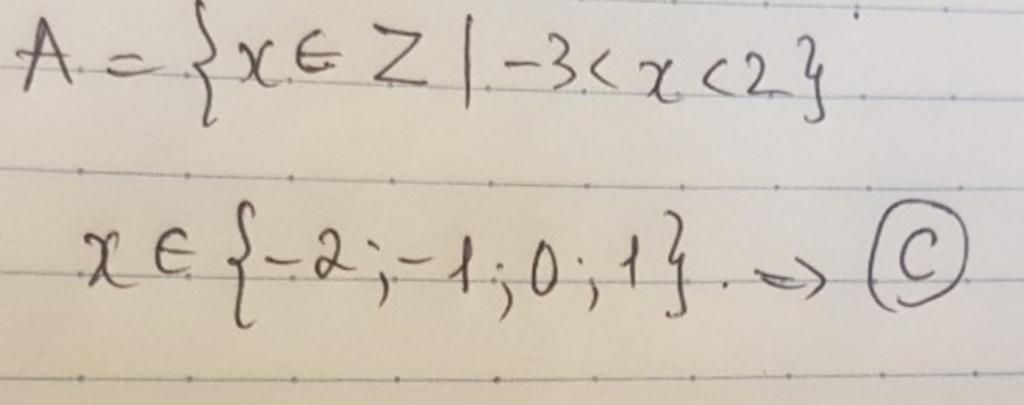 A = {x ∈ Z | -3 < x < 2}
x ∈ {-2; -1; 0; 1}. => C